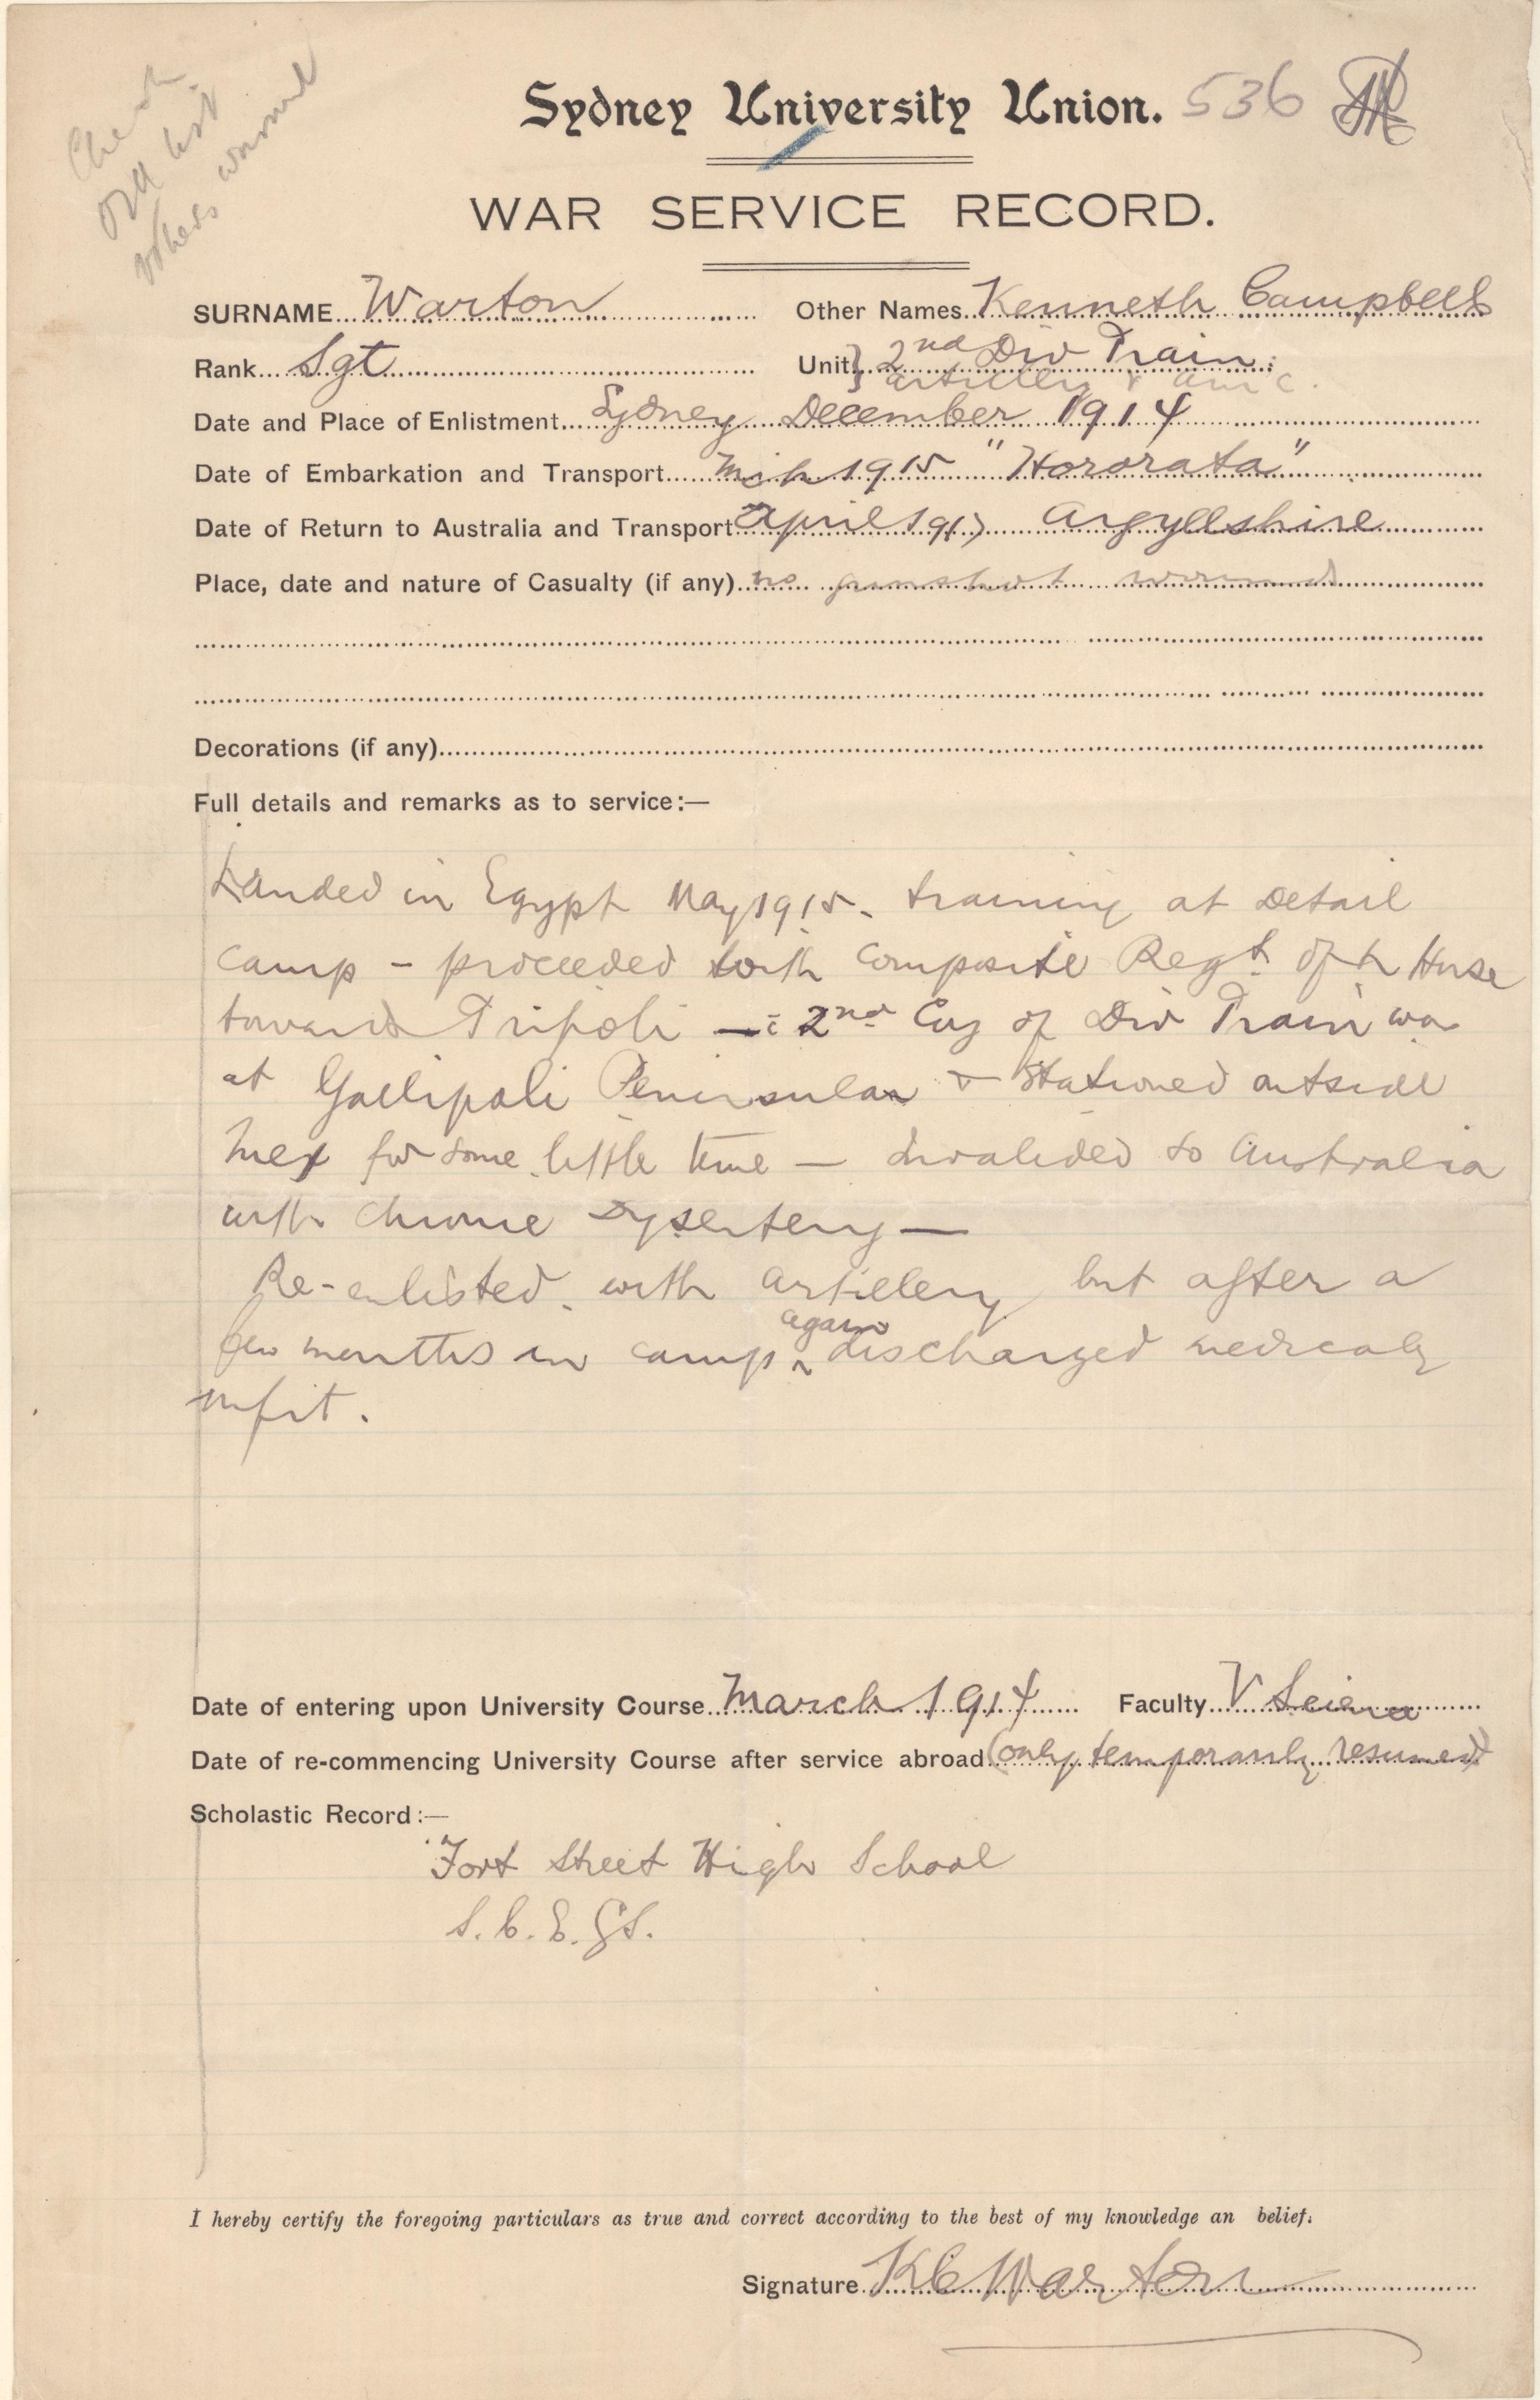 Check
old list
others
Sydney University Union. 536
WAR SERVICE RECORD.
SURNAME Warton Other Names Kenneth Campbell
Rank Sgt Unit 2nd Div Train
artillery & amc.
Date and Place of Enlistment Sydney December 1914
Date of Embarkation and Transport Mch 1915 "Hororata"
Date of Return to Australia and Transport April 1917 Argyllshire
Place, date and nature of Casualty (if any) no gunshot wound
Decorations (if any)
Full details and remarks as to service:—
Landed in Egypt May 1915. training at Detail
camp - proceeded with Composite Regt of Lt Horse
towards Tripoli — 2nd Coy of Div Train was
at Gallipoli Peninsular & stationed outside
Mex for some little time — Invalided to Australia
with chronic Dysentery —
Re-enlisted with artillery but after a
few months in camp again discharged medicaly
unfit.
Date of entering upon University Course March 1914 Faculty V Science
Date of re-commencing University Course after service abroad (only temporarily resumed)
Scholastic Record:—
Fort Street High School
S.C.E.G.S.
I hereby certify the foregoing particulars as true and correct according to the best of my knowledge an belief.
Signature KC Warton